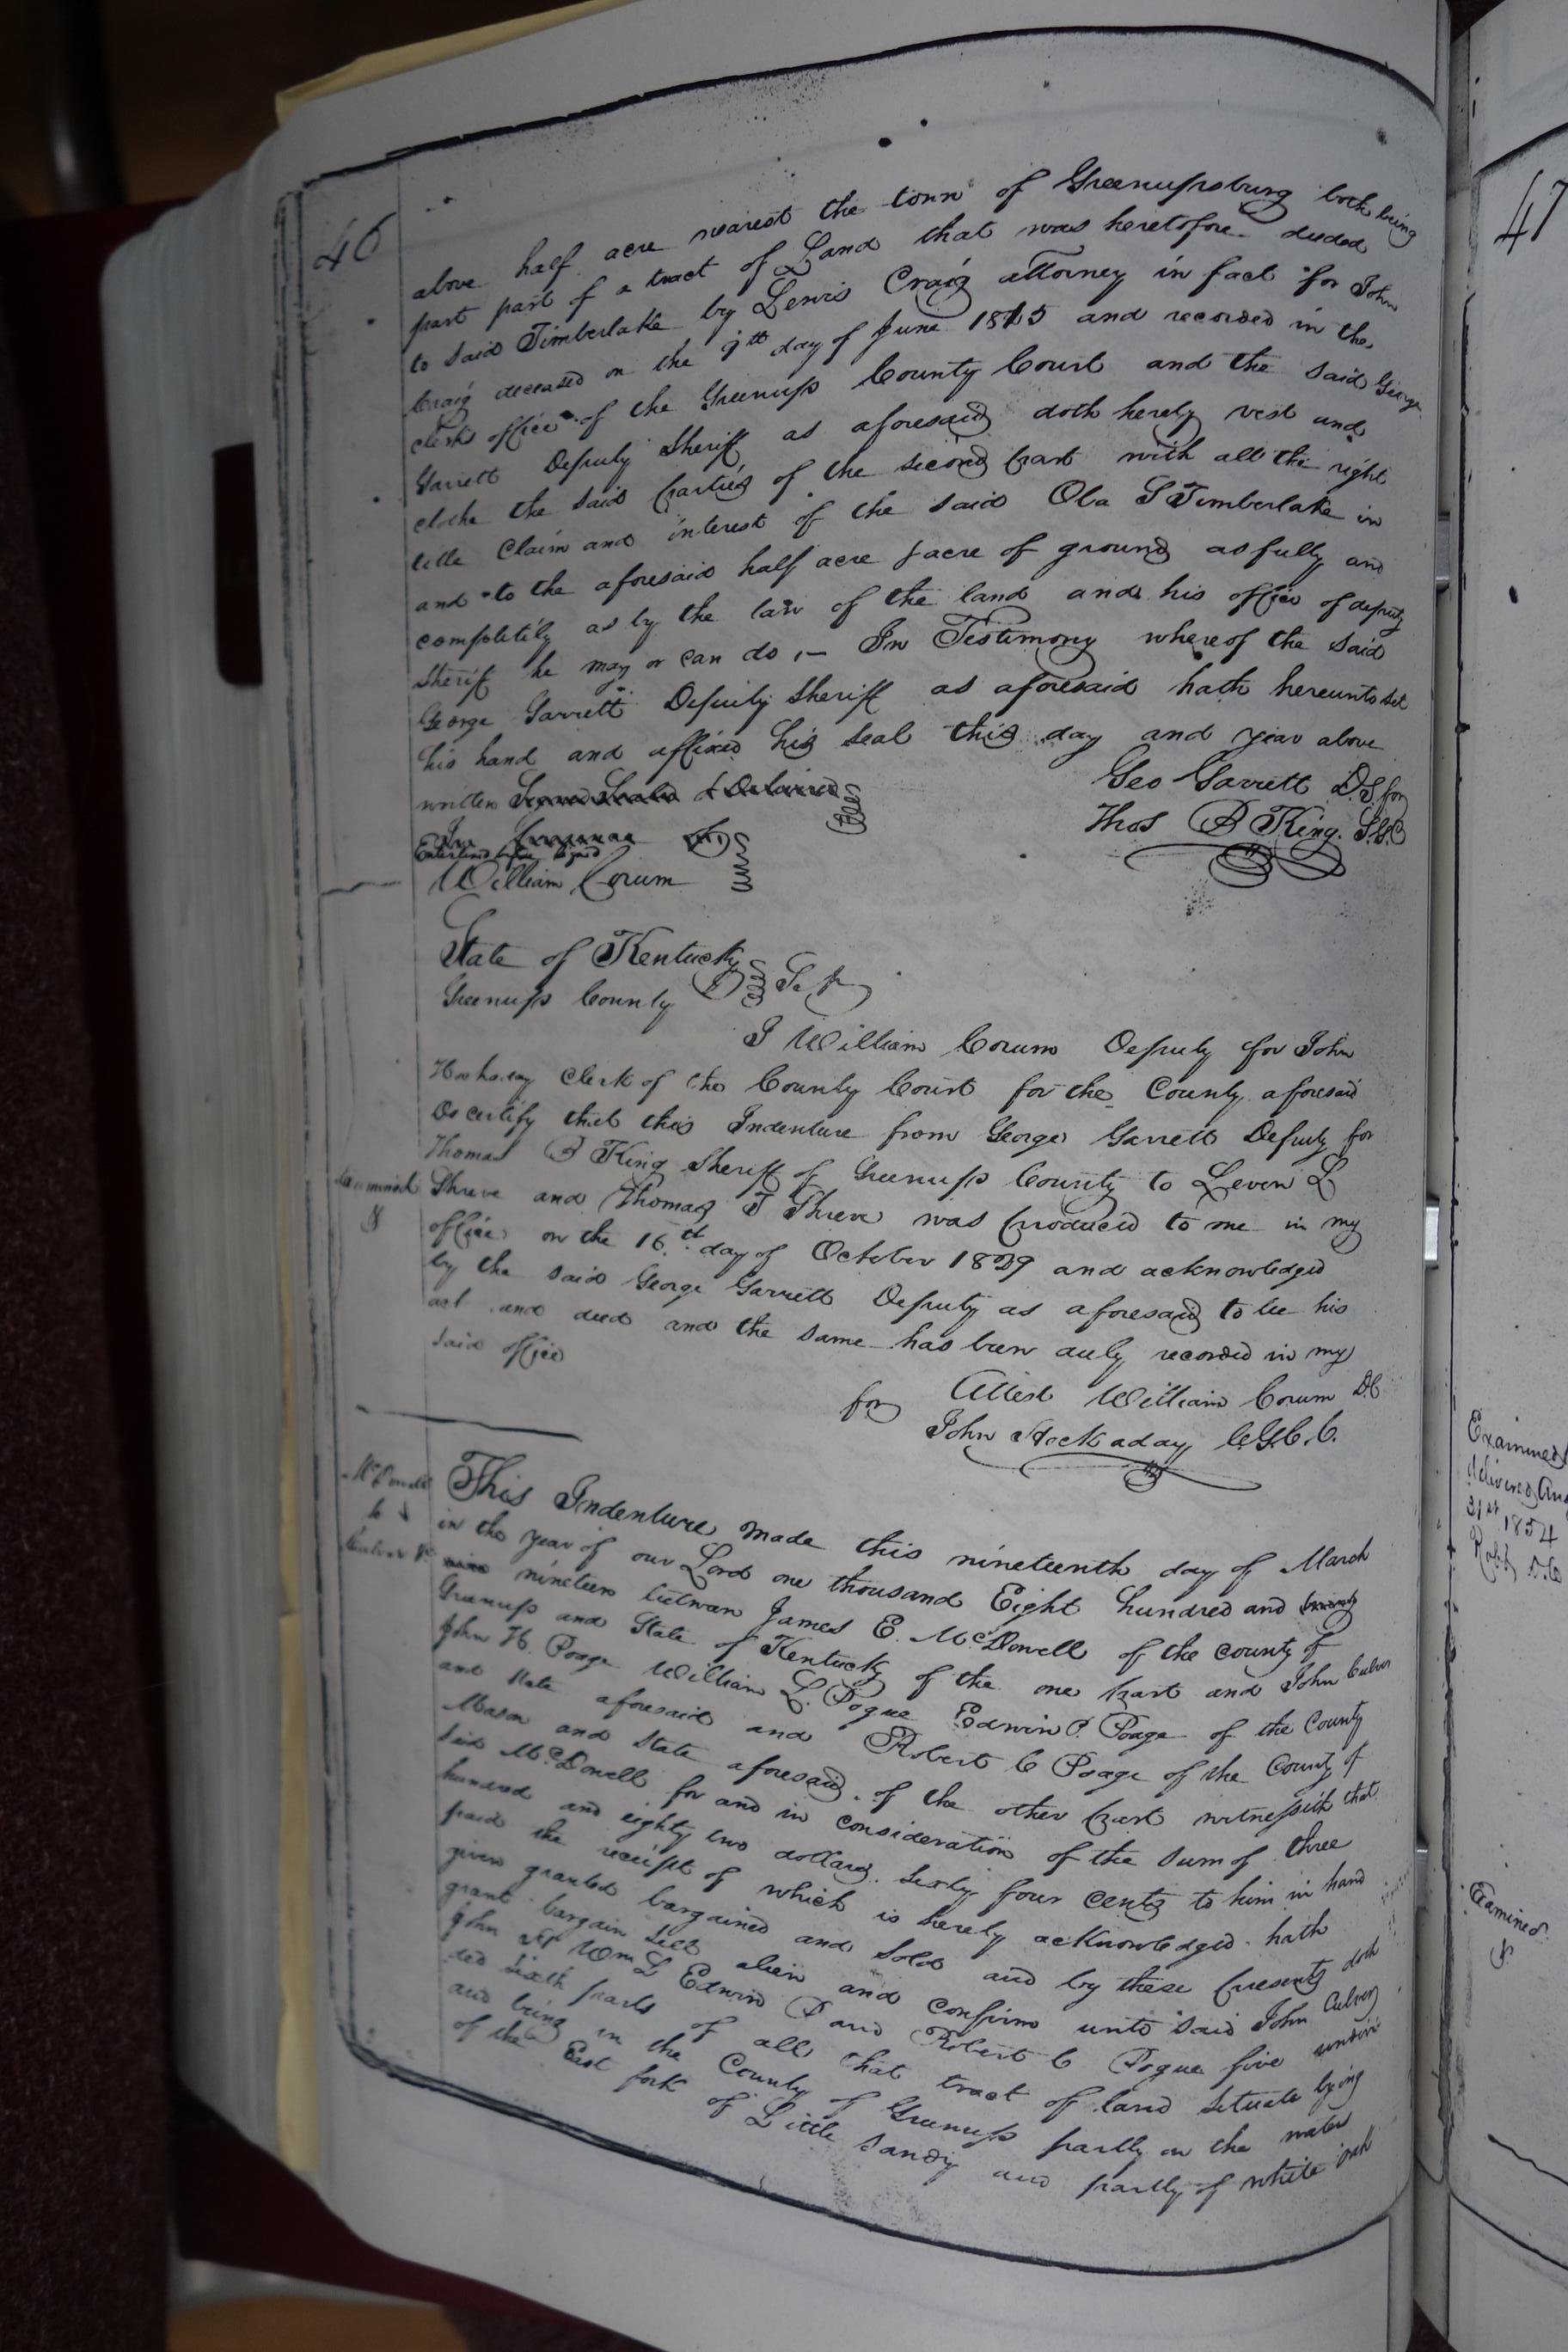 46
above half acre nearest the town of Greenupsburg both being
part part of a tract of Land that was heretofore deeded
to said Timberlake by Lewis Craig attorney in fact for John
Craig deceased on the 9th day of June 1815 and recorded in the
clerk office of the Greenup County Court and the said George
Garrett Deputy Sheriff as aforesaid doth hereby vest and
clothe the said parties of the second part with all the right
title Claim and interest of the said Oba S Timberlake in
and to the aforesaid half acre of ground as fully and
completily as by the law of the land and his office of deputy
Sheriff he may or can do, — In Testimony whereof the said
George Garrett Deputy Sheriff as aforesaid hath hereunto set
his hand and affixed his seal this day and year above
written Signed Sealed & Delivered
Geo Garrett D.S. for
Thos B King. S.G.C
Enterlined before Signed
William Corum
State of Kentucky
Greenup County Sct
I William Corum Deputy for John
Hockaday Clerk of the County Court for the County aforesaid
Do certify that this Indenture from George Garrett Deputy for
Thomas B King Sheriff of Greenup County to Leven L
Examined
Shreve and Thomas J Shreve was produced to me in my
office on the 16th day of October 1829 and acknowledged
by the said George Garrett Deputy as aforesaid to be his
act and deed and the same has been duly recorded in my
said office
Attest William Corum D.C
for John Hockaday C.G.C.C.
McDowell
to
Culver &c
This Indenture made this nineteenth day of March
in the year of our Lord one thousand Eight hundred and twenty
nine nineteen between James E. McDowell of the county of
Greenup and State of Kentucky of the one part and John Culver
John H. Poage William L. Pogue Edwin P. Poage of the County
and State aforesaid and Robert C Poage of the County of
Mason and State aforesaid of the other part witnesseth that
said McDowell for and in consideration of the sum of three
hundred and eighty two dollars sixty four cents to him in hand
paid the receipt of which is hereby acknowledged hath
given granted bargained and sold and by these presents doth
grant bargain sell alien and confirm unto said John Culver
John H Wm L Edwin P and Robert C Pogue five undivi
ded sixth parts of all that tract of land situate lying
and being in the County of Greenup partly on the water
of the East fork of Little Sandy and partly of white oak
47
Examined
delivered Aug
31st 1854
Examined